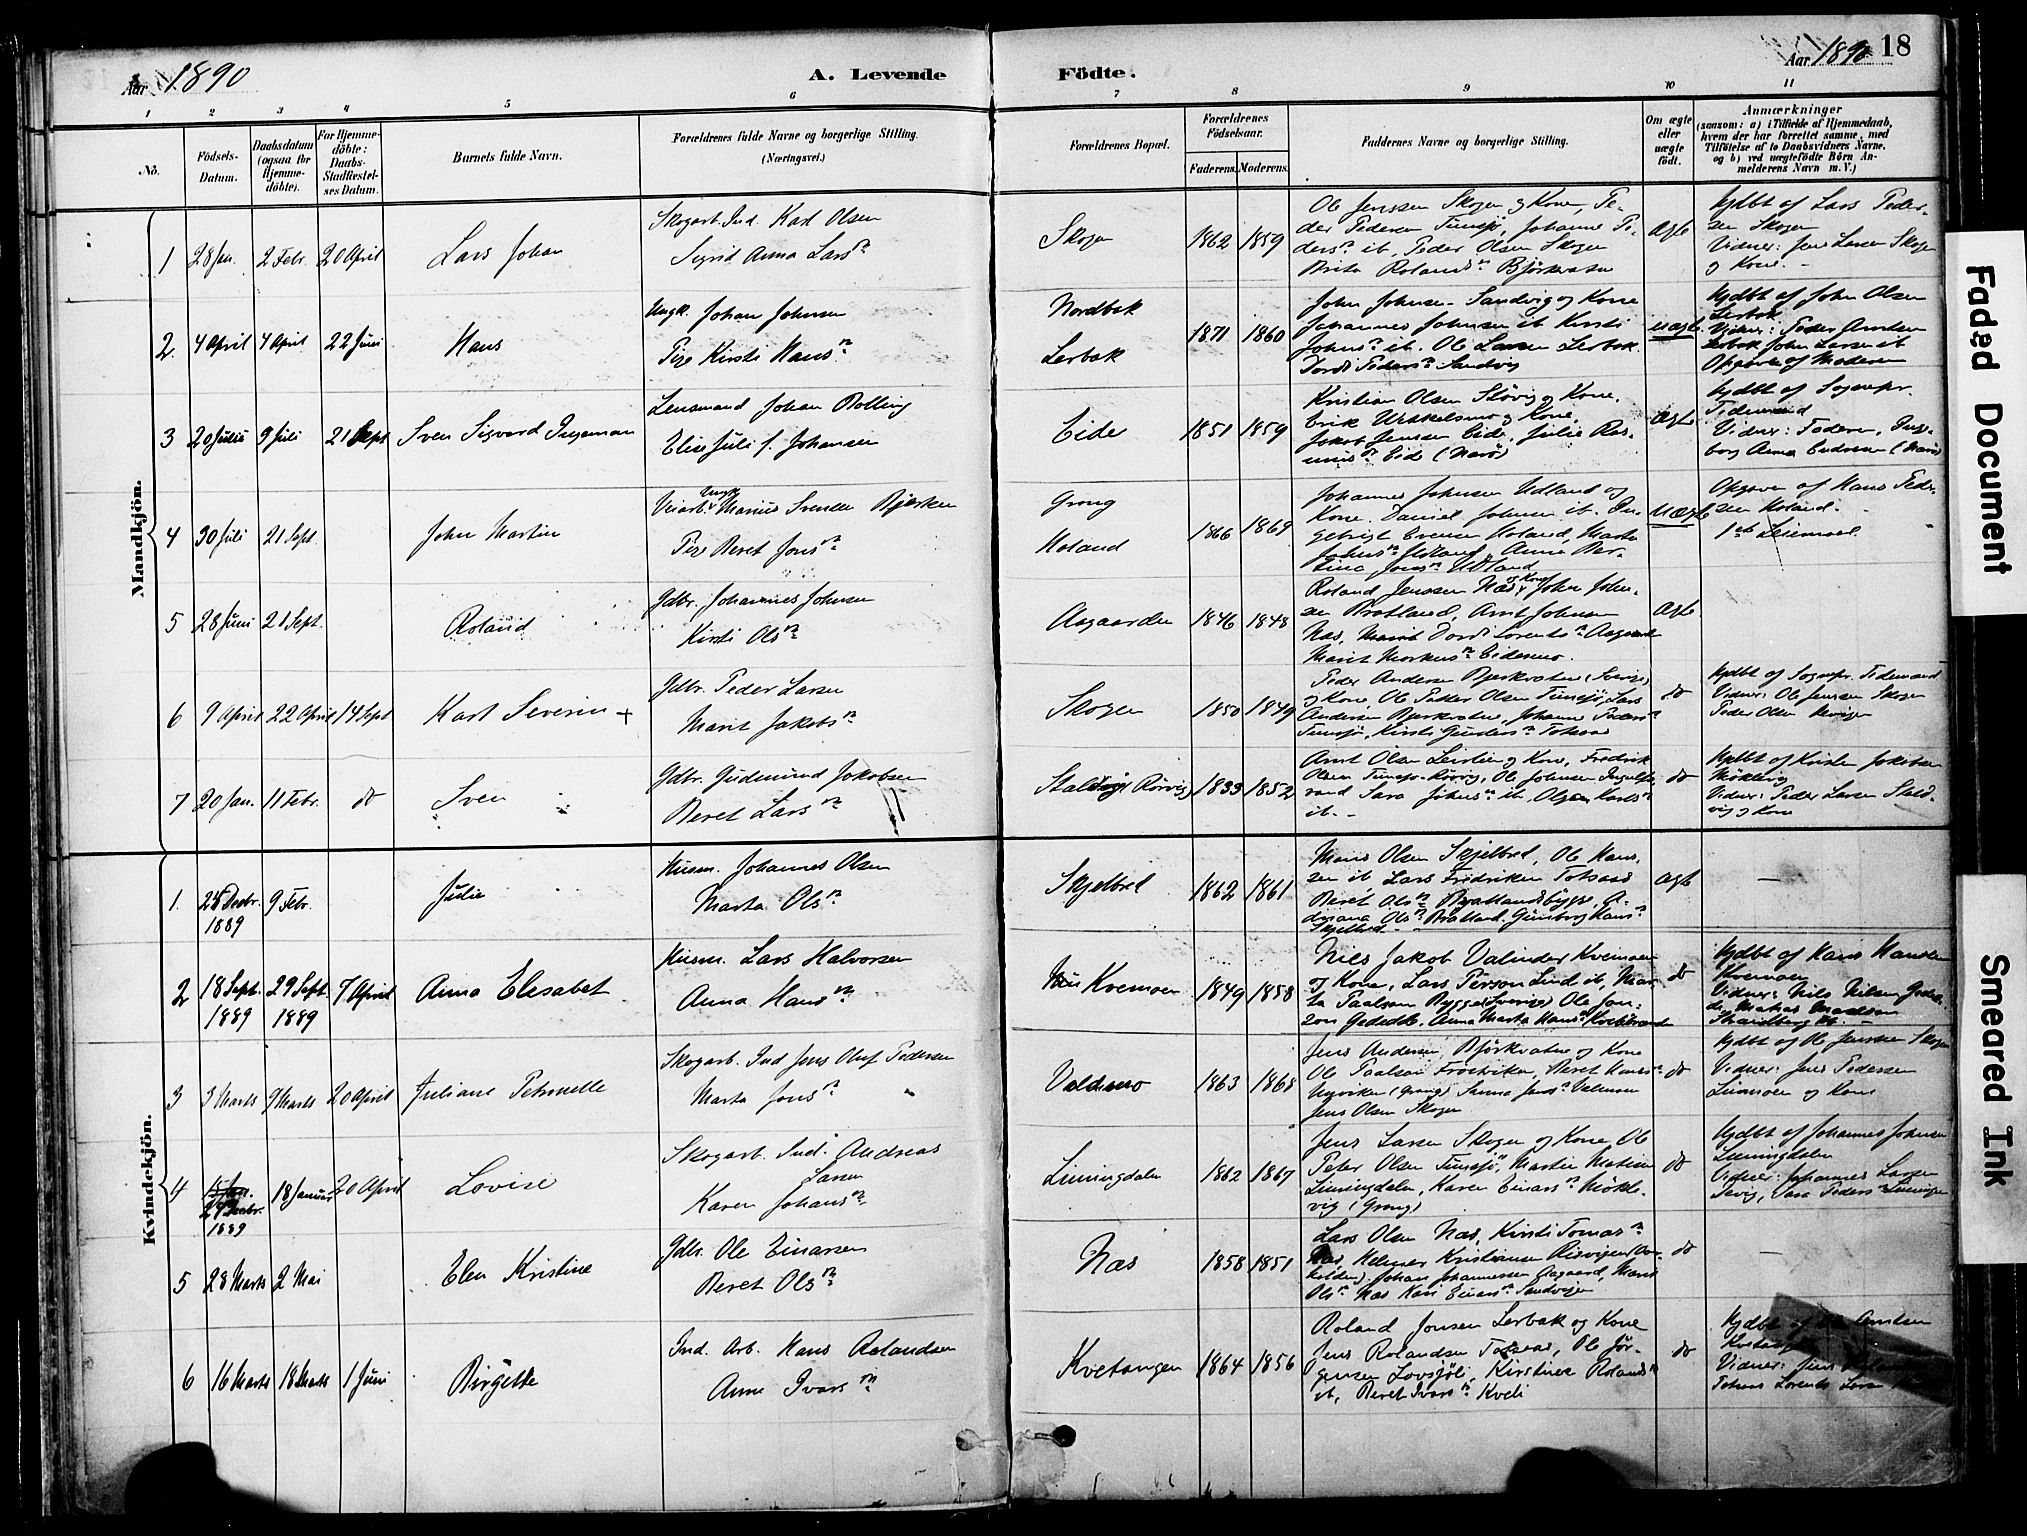 Aar 1890
A. Levende
Födte.
Aar 1890
18
1 2 3 4 5 6 7 8 9 10 11
No.
Födsels-
Datum.
Daabsdatum
(ogsaa for
Hjemme-
döbte).
For Hjemme-
döbte:
Daabs-
Stadfæstel-
ses Datum.
Barnets fulde Navn.
Forældrenes fulde Navne og borgerlige Stilling.
(Næringsvei.)
Forældrenes Bopæl.
Forældrenes
Födselsaar.
Faderens.
Moderens.
Faddernes Navne og borgerlige Stilling.
Om ægte
eller
uægte
födt.
Anmærkninger
(saasom: a) i Tilfælde af Hjemmedaab,
hvem der har forrettet samme, med
Tilföielse af to Daabsvidners Navne,
og b) ved uægtefödte Börn An-
melderens Navn m.V.)
Mandkjön.
1 28 Jan. 2 Febr. 20 April Lars Johan
Skogarb. Ind. Karl Olsen
Sigrid Anna Larsdn
Skogen 1862 1859
Ole Jenssen Skogen og Kone, Pe-
der Pedersen Tunsjö, Johanne Pe-
dersdn ib, Peder Olsen Skogen
Brita Rolandsdn Björkvatn
Ægte
Hjdbt af Lars Peder-
sen Skogen
Vidner: Jens Larsen Skogen
og Kone. -
2 4 April 4 April 22 Juni Hans
Ungk. Johan Johnsen
Pige Kirsti Hansdn
Nordbak
Lerbak
1871 1860
John Johnsen Sandvig og Kone
Johannes Johnsen ib Kirsti
Johnsdn ib. Ole Larsen Lerbak.
Dordi Pedersdn Sandvig
Uægte
Hjdbt af John Olsen
Lerbak
Vidner: Peder Arntsen
Lerbak John Larsen ib
Opgaven af Moderen
3 20 Juni 9 Juli 21 Sept Sven Sigvard Ingeman
Lensmand Johan Bolling
Elise Juli f. Johansen
Eide 1851 1859
Kristian Olsen Støvig og Kone.
Jakob Jensen Eide, Julie Ras-
musdn Eide (Nærö)
Ægte
Hjdbt af Sognepr.
Tidemand
Vidner: Faderen, Inge-
borg Anna
4 30 Juli 21 Sept. John Martin
Ungk
Veiarb. Marius Svendsen Bjerken
Pige Beret Jonsdn
Grong
Moland
1866 1869
Johannes Johnsen Udland og
Kone. Daniel Johnsen ib. In-
gebrigt Evensen Moland, Marta
Johnsdn Udland, Anne Ber-
tina Jonsdn Udland
Uægte
Opgaven af Hans Peder-
sen Moland.
5 28 Juni 21 Sept. Roland
Gdbr. Johannes Johnsen
Kirsti Olsdn
Aagaarden 1846 1848
og Kone
Roland Jenssen Næs, John John-
sen Bratland, Arnt Johnsen
Næs, Marit Dordi Lorentsdn Aagaard
Marit Morkusdn Eidesmo.
Ægte
6 9 April 22 April 14 Sept Karl Severin +
Gdbr. Peder Larsen
Marit Jakobsdn
Skogen 1850 1849
Peder Andersen Bjørkvatn (Sverige)
og Kone, Ole Peder Olsen Tunsjö, Lars
Andersen Bjørkvatn, Johanne Pedersdn
Tunsjö, Kirsti Gundersdn Totsaas
do
Hjdbt af Sognepr. Tidemand
Vidner: Ole Jenssen Skogen
Peder Olsen
7 20 Jan. 11 Febr. do Sven
Gdbr. Gudmund Jakobsen
Beret Larsdn
Staldvig Rörvig 1833 1852
Arnt Olsen Leirlien og Kone, Fredrik
Olsen Tunsjö-Rörvig, Ole Johnsen Ingulfs-
vand Sara Johnsdn ib, Olsen Karlsdn
ib. -
do
Hjdbt af Kristen Jakobsen
Mökkelvig
Vidner: Peder Larsen Stald-
vig og Kone
Kvindekjön.
1. 25 Decbr. 9 Febr. Julie
1889
Husm. Johannes Olsen
Marta Olsdn
Skjelbred 1862 1861
Hans Olsen Skjelbred, Ole Han-
sen ib Lars Fredriksen Totsaas
Beret Olsdn Bratlandsbygg, A-
driana Olsdn Bratland. Gunborg Hansdn
Skjelbred -
Ægte
—
2 18 Sept. 29 Sept 7 April Anna Elisabet
1889 1889
Husm. Lars Halvorsen
Anna Hansdn
Kvemoen 1849 1858
Nils Jakob Valinder Kvemoen
og Kone, Lars Person Lind ib, Mar-
ta Paalson Bygge (Sverige) Ole Jon-
son Gededdt. Anna Marta Hansdn Kvelistrand
do
Hjdbt af Hans Hansen
Kvemoen
Vidner: Nils Nilsen Gedde-
de, Matias
3 3 Marts 9 Marts 20 April Juliane Petronelle
Skogarb. Ind Jens Oluf Pedersen
Marta Jonsdn
Valdmo 1863 1868
Jens Andersen, Björkvatn og Kone
Ole Paalsen Frostviken, Beret Hansdn
Nyviken (Grong) Sanna Jonsdn Valmoen
Jens Olsen Skogen
do
Hjdbt af Ole Jenssen Skogen
Vidner: Jens Pedersen
Limoen og Kone
4 29 Decbr. 18 Januar 20 April Lovise
1889
Skogarb. Ind. Andreas
Larsen
Karen Johansdn
Limingdalen 1862 1867
Jens Larsen Skogen og Kone, Ole
Peter Olsen Tunsjö, Martin Matisen
Limingdalen, Karen Einarsdn Mökle-
vig (Grong)
do
Hjdbt af Johannes Johnsen
Limingdalen
Vidner: Johannes Larsen
Devig, Sara Pedersdn Limingen
5 28 Marts 2 Mai Elen Kristine
Gdbr. Ole Einarsen
Beret Olsdn
Næs 1858 1851
Lars Olsen Næs, Kirsti Tomasdn
Næs, Helmer Kristiansen Risvigen (Over-
halden), Johan Johannessen Aagaard, Marit
Olsdn Næs Kari Einarsdn Sandvigen
do
—
6 16 Marts 18 Marts 1 Juni Birgitte
Ind. Arb. Hans Rolandsen
Anne Ivarsdn
Kvetangen 1864 1856
Roland Jonsen Lerbak og Kone
Jens Rolandsen Totsaas, Ole Jör-
gensen Lovsjöli, Kirstine Rolandsdn
ib, Beret Ivarsdn Kveli
do
Hjdbt af Ole Arntsen
Vidner: Jens
Faded Document
Smeared Ink